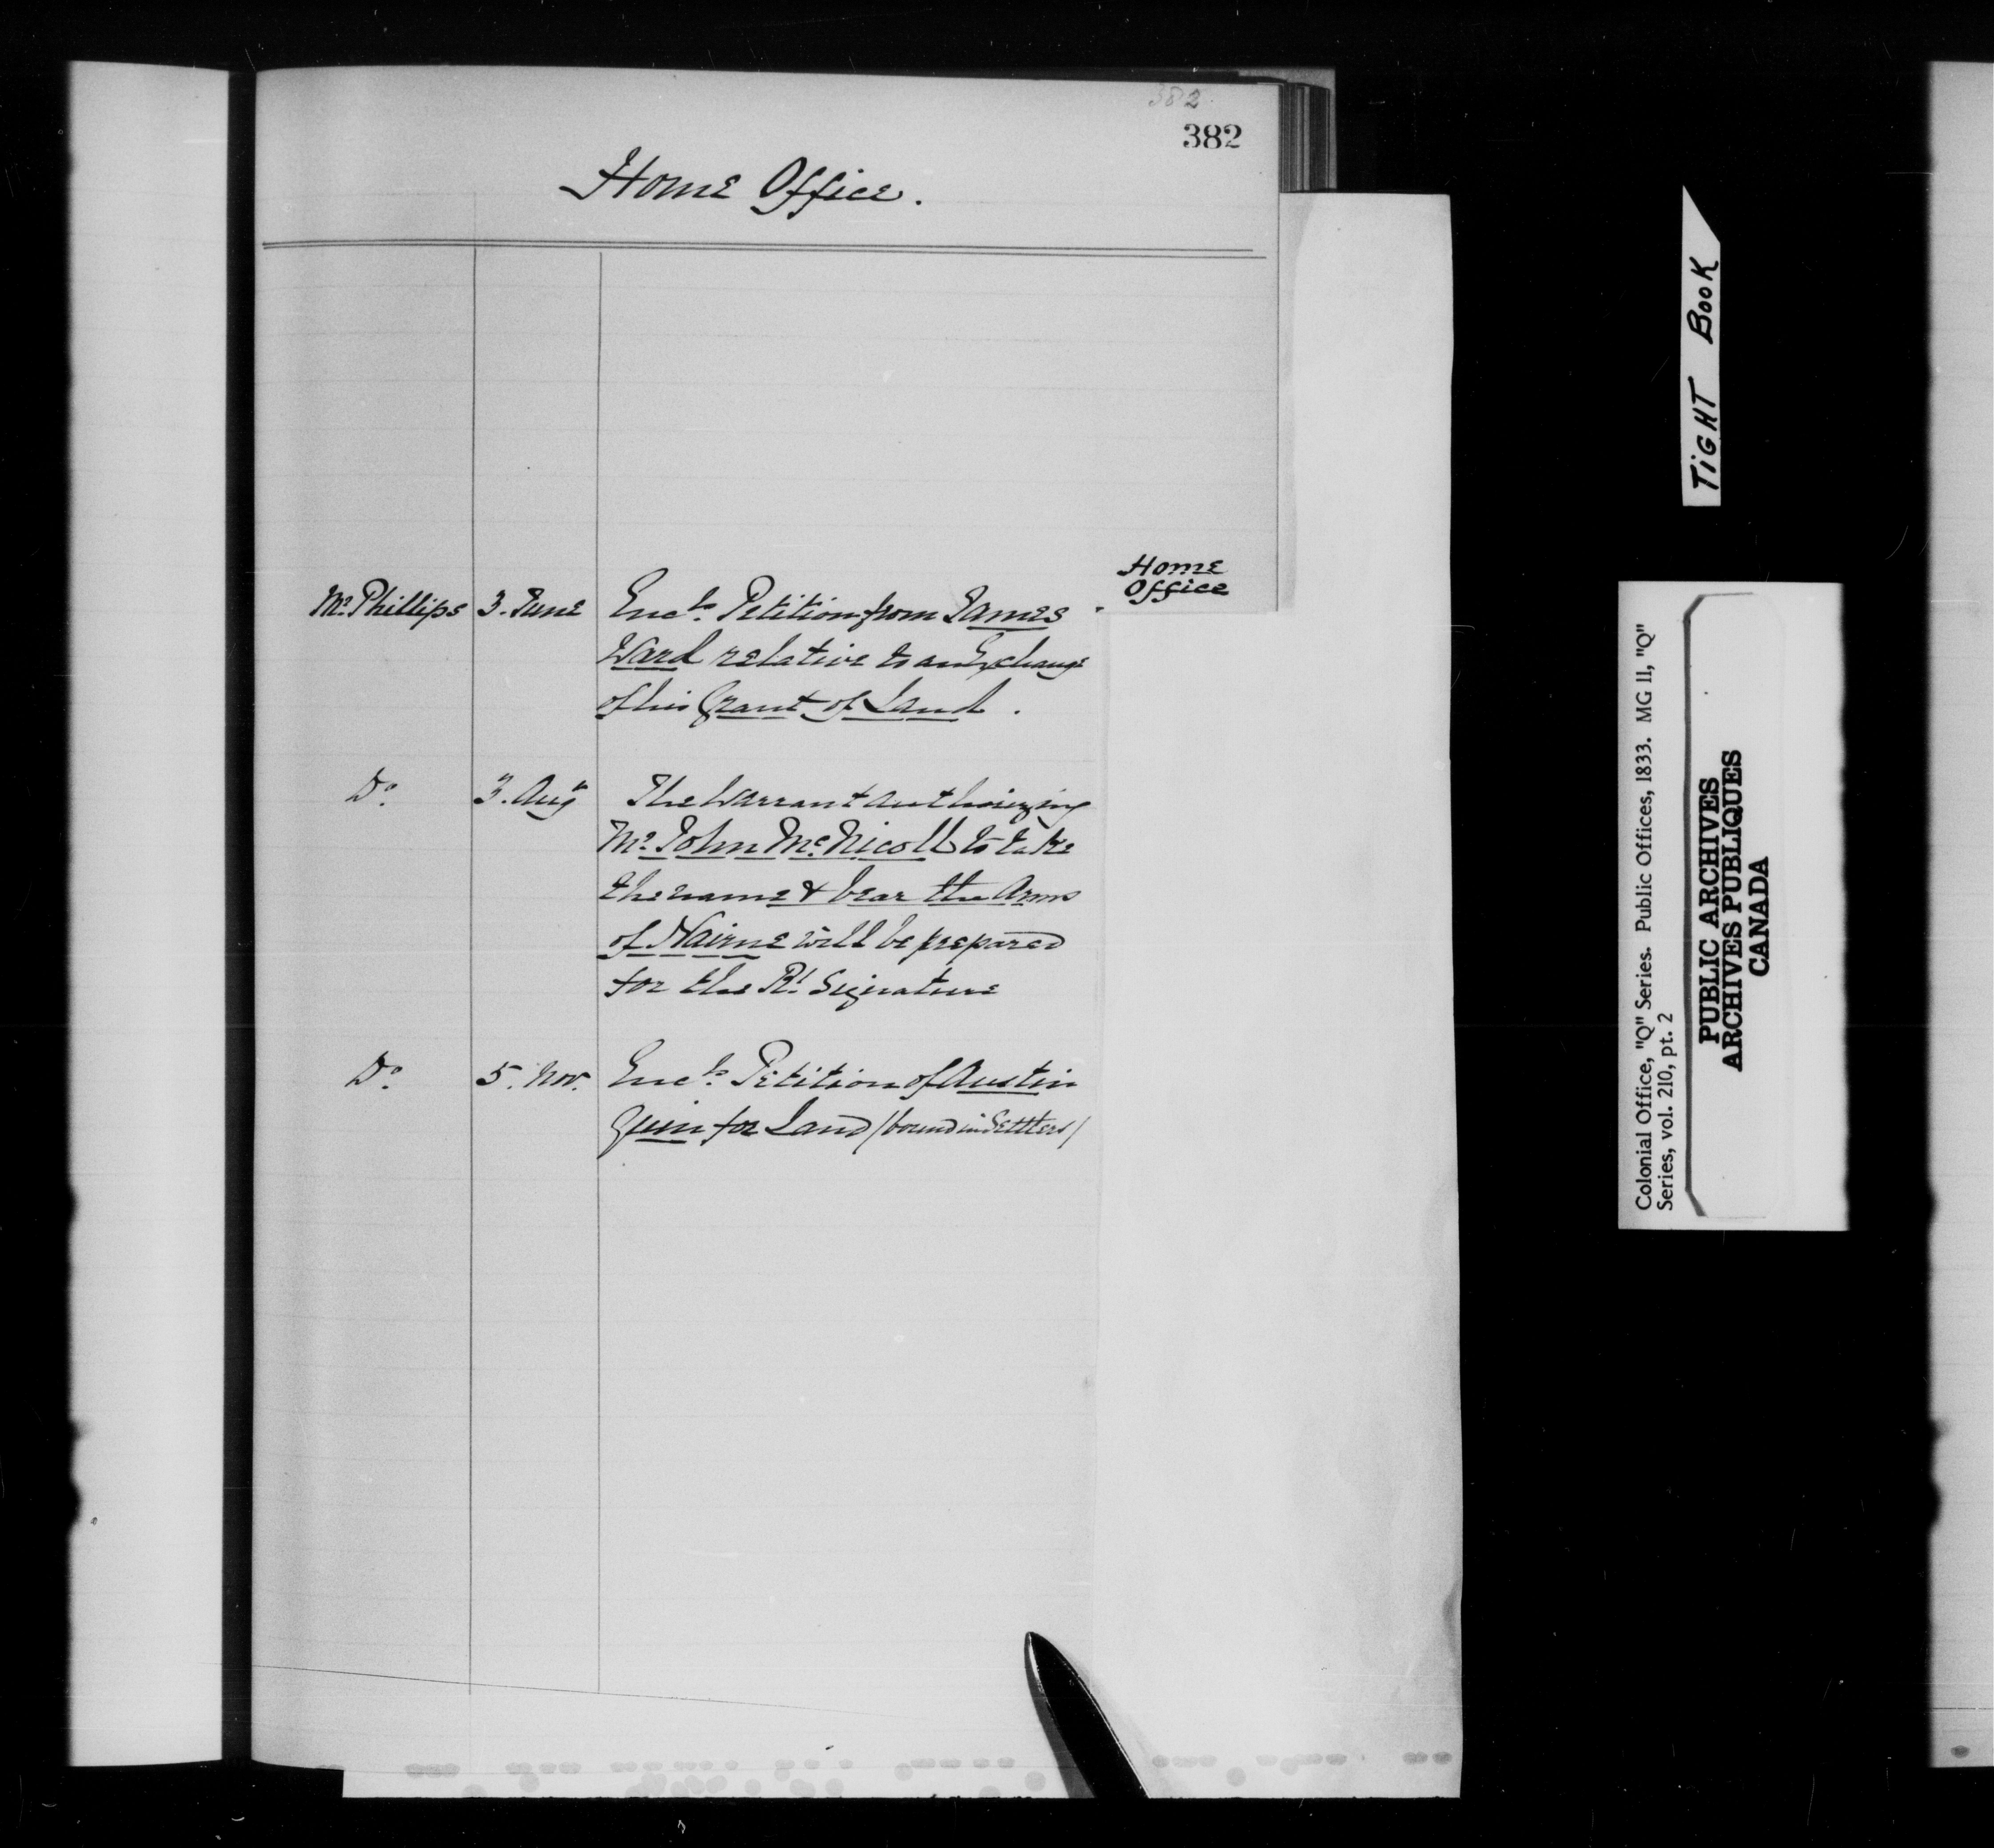 382
382
Home Office.
Home
Office
Mr. Phillips 3. June Encls. Petition from James
Ward relative to an Exchange
of his Grant of Land.
Do. 3. Augt The Warrant authorizing
Mr. John McNicoll to take
the name & bear the Arms
of Nairne will be prepared
for the Rl. Signature
Do. 5. Nov. Encls. Petition of Austin
Quin for Land /bound in Settlers/
TIGHT BOOK
Colonial Office, "Q" Series. Public Offices, 1833. MG 11, "Q"
Series, vol. 210, pt. 2
PUBLIC ARCHIVES
ARCHIVES PUBLIQUES
CANADA